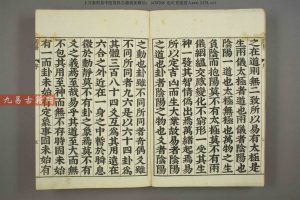 之在道則無二致所以易有太極是
生兩儀太極者道也兩儀者陰陽也
陰陽一道也太極無極也萬物之生
負陰而抱陽莫不有太極莫不有兩
儀絪縕交感變化不窮形一受其生
神一發其智情偽出焉萬緒起焉易
所以定吉凶而生大業故易者陰陽
之道也卦者陰陽之物也爻者陰陽
之動也卦雖不同所同者奇偶爻雖
不同所同者九六是以六十四卦為
其體三百八十四爻互為其用遠在
六合之外近在一身之中暫於瞬息
微於動靜莫不有卦之象焉莫不有
爻之義焉至哉易乎其道至大而無
不包其用至神而無不存時固未始
有一而卦未始有定象事固未始有